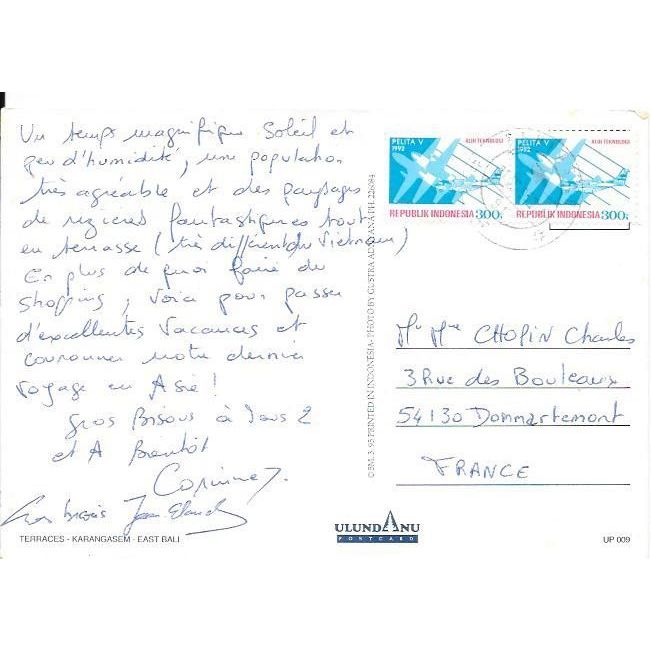 Un temps magnifique Soleil et
peu d'humidité, une population
très agréable et des paysages
de rizieres fantastiques tout
en terrasse (très différent du Vietnam)
En plus de quoi faire du
shopping, voici pour passer
d'excellentes vacances et
couronner notre dernier
voyage en Asie!
Gros Bisous à Vous 2
et A Bientôt
Corinne
Gros bisous Jean Claude
TERRACES - KARANGASEM - EAST BALI
PRINTED IN INDONESIA - PHOTO BY GUSTRA ADNYANA
PELITA V
1992
ALIH TEKNOLOGI
REPUBLIK INDONESIA 300
PELITA V
1992
ALIH TEKNOLOGI
REPUBLIK INDONESIA 300
Mr Mme CHOPIN Charles
3 Rue des Bouleaux
54130 Dommartemont
FRANCE
ULUNDANU
POSTCARD
UP 009